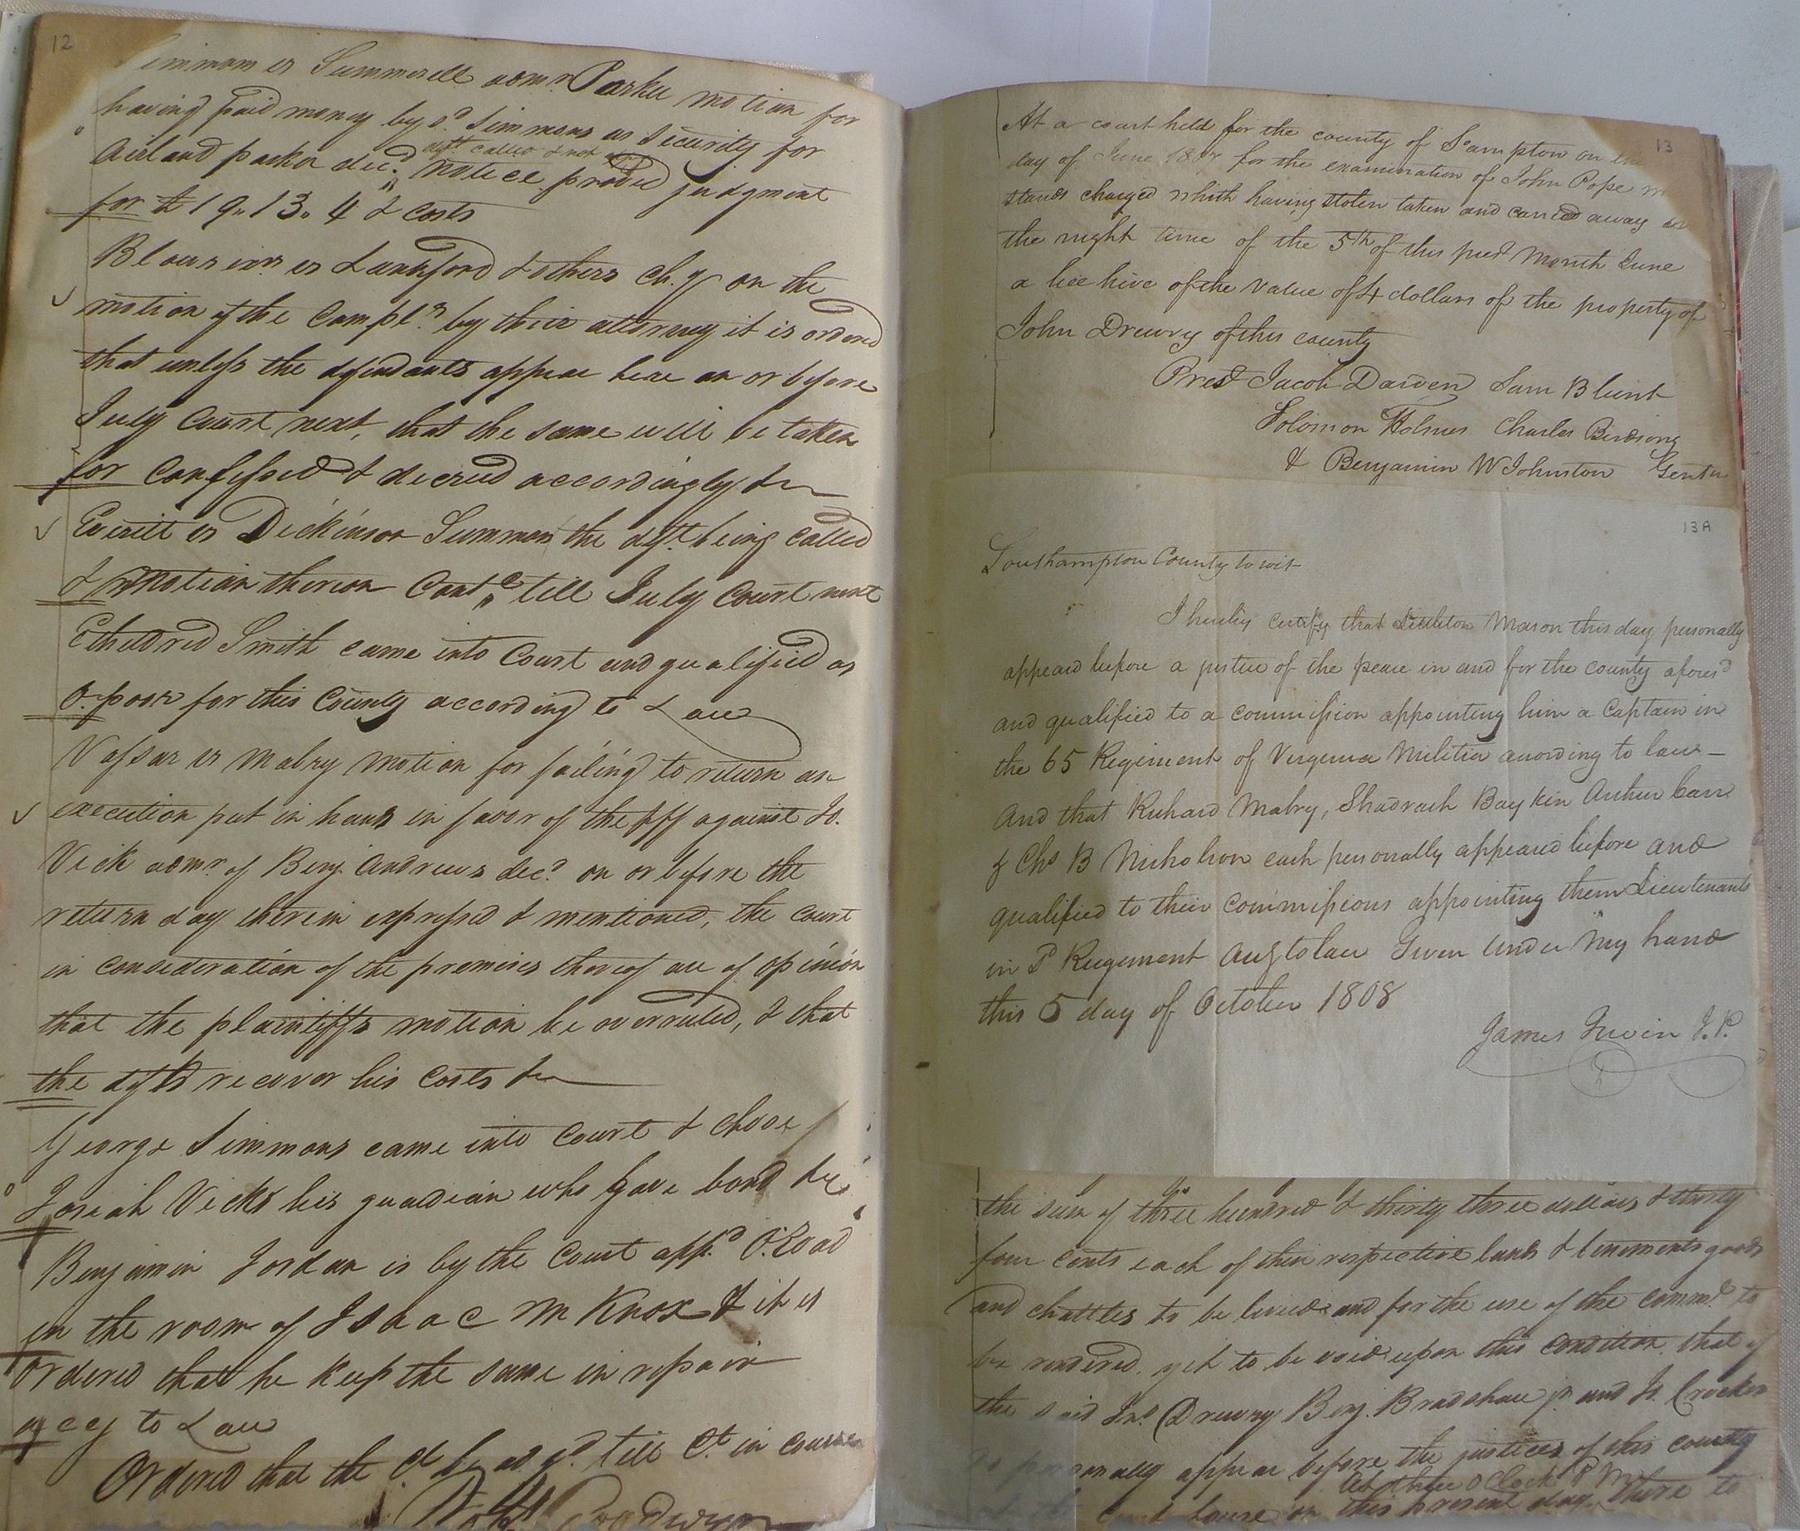 12
Summerell admr. Parker motion for
having paid money by sd. Simmons as security for
deft. called & not
parker decd. notice proved judgment
for £19.13.4 & costs
vs Lankford & others Ch.y on the
motion of the Complts. by their attorney it is ordered
that unless the defendants appear here on or before
July Court next, that the same will be taken
for Confessed & decreed accordingly &c
Everitt vs Dickinson Summon the deft. being called
& motion thereon Contd. till July Court next
Etheldred Smith came into Court and qualified as
O. poor for this County according to Law
Vassar vs Mabry motion for failing to return an
execution put in hands in favor of the plff against Js.
Vick admr. of Benj. Andrews decd. on or before the
return day therein expressed & mentioned, the court
in consideration of the premises thereof are of opinion
that the plaintiffs motion be overruled, & that
the deft recover his costs &c
George Simmons came into Court & chose
Josiah Vicks his guardian who gave bond &c
Benjamin Jordan is by the Court appd. O. Road
in the room of Isaac M Knox & it is
ordered that he keep the same in repair
accg to Law
Ordered that the Ct be adjd. till Ct. in course
13
At a court held for the county of Sampton on the
day of June for the examination of John Pope
stands charged whith having stolen taken and carried away
the night time of the 5th of this prest Month June
a bee hive of the value of 4 dollars of the property of
John Drewry of this county
Prest Jacob Darden Sam Blunt
Solomon Holmes Charles Birdsong
& Benjamin W Johnston Gentn
13A
Southampton County to wit
I hereby certify that Littleton Mason this day personally
appeard before a justice of the peace in and for the county aforesd
and qualified to a commission appointing him a Captain in
the 65 Regiment of Virginia Militia according to law—
And that Richard Mabry, Shadrach Baykin Arthur Carr
& Chs B Nicholson each personally appeared before and
qualified to their commissions appointing them Lieutenants
in sd Regiment Accg to law Given under My hand
this 5 day of October 1808
James J.P.
the sum of three hundred & thirty three dollars & thirty
four cents each of their respective lands & tenements goods
and chattles to be levied and for the use of the commth to
be rendered yet to be void upon this condition that if
the said Jno Drewry Benj. Bradshaw jr and Js. Crocker
personally appear before the justices of this county
At three o Clock P M
house on this present day there to